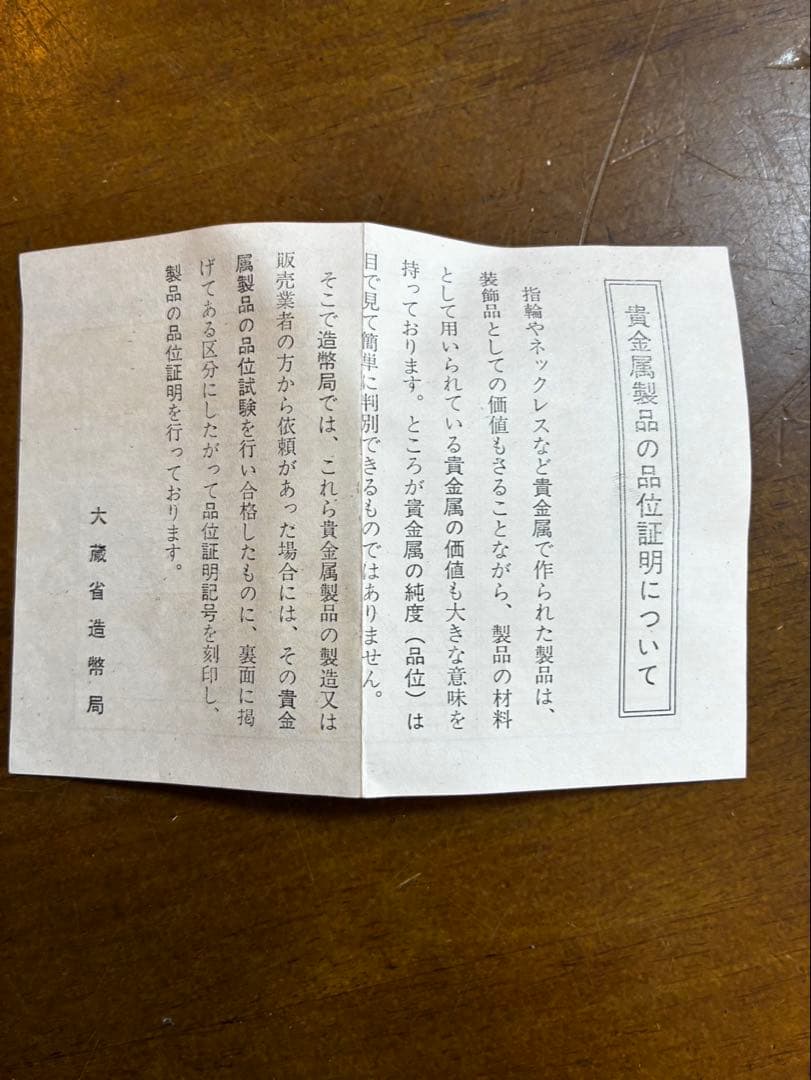 貴金属製品の品位証明について
指輪やネックレスなど貴金属で作られた製品は、
装飾品としての価値もさることながら、製品の材料
として用いられている貴金属の価値も大きな意味を
持っております。ところが貴金属の純度（品位）は
目で見て簡単に判別できるものではありません。
そこで造幣局では、これら貴金属製品の製造又は
販売業者の方から依頼があった場合には、その貴金
属製品の品位試験を行い合格したものに、裏面に掲
げてある区分にしたがって品位証明記号を刻印し、
製品の品位証明を行っております。
大蔵省造幣局